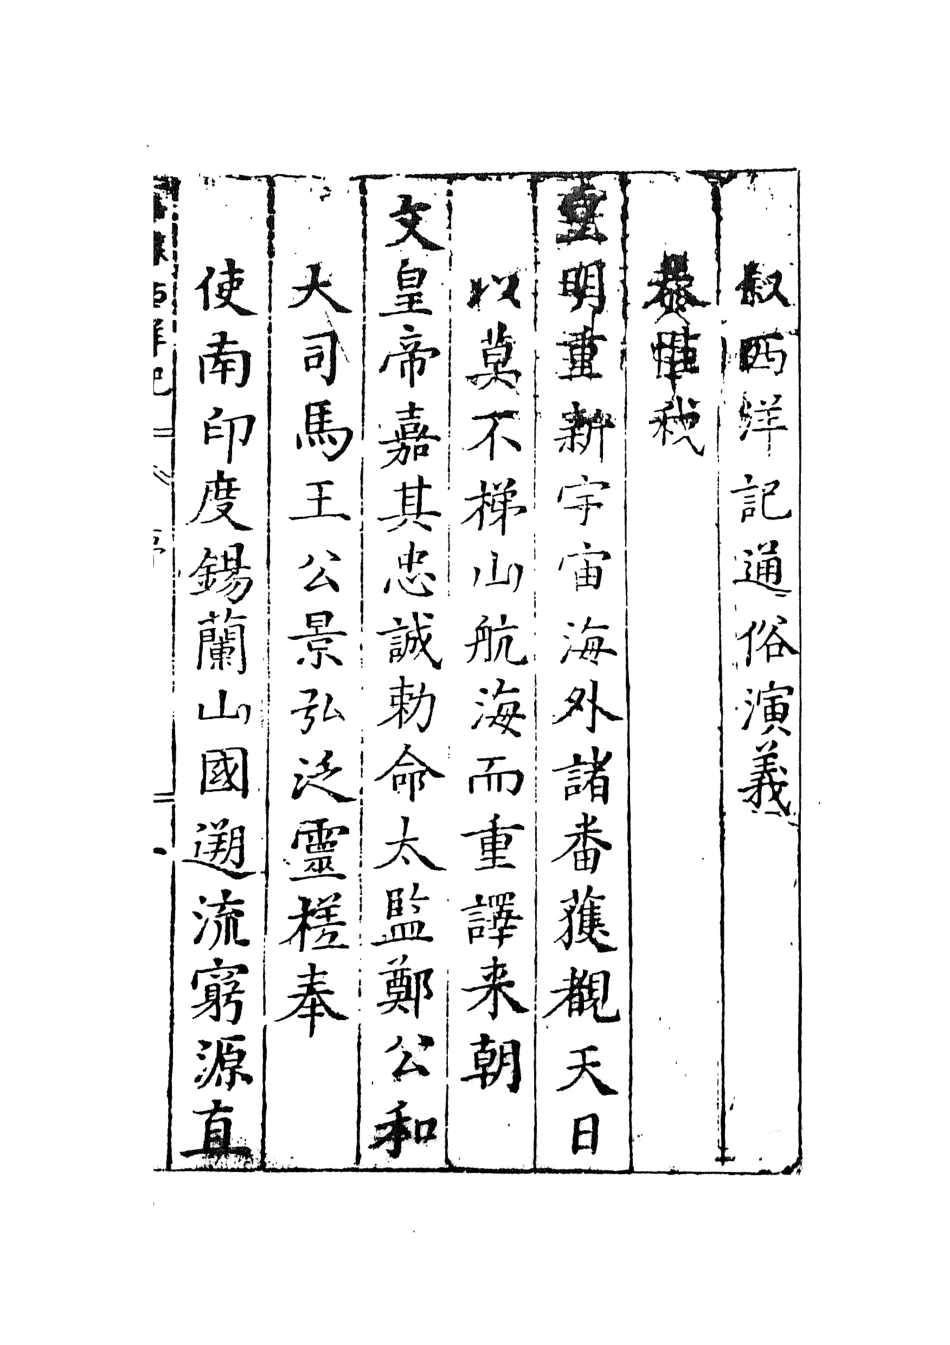 叙西洋記通俗演義
恭惟我
重明重新宇宙海外諸番獲覩天日
以莫不梯山航海而重譯来朝
文皇帝嘉其忠誠勅命太監鄭公和
大司馬王公景弘泛靈槎奉
使南印度錫蘭山國遡流窮源直